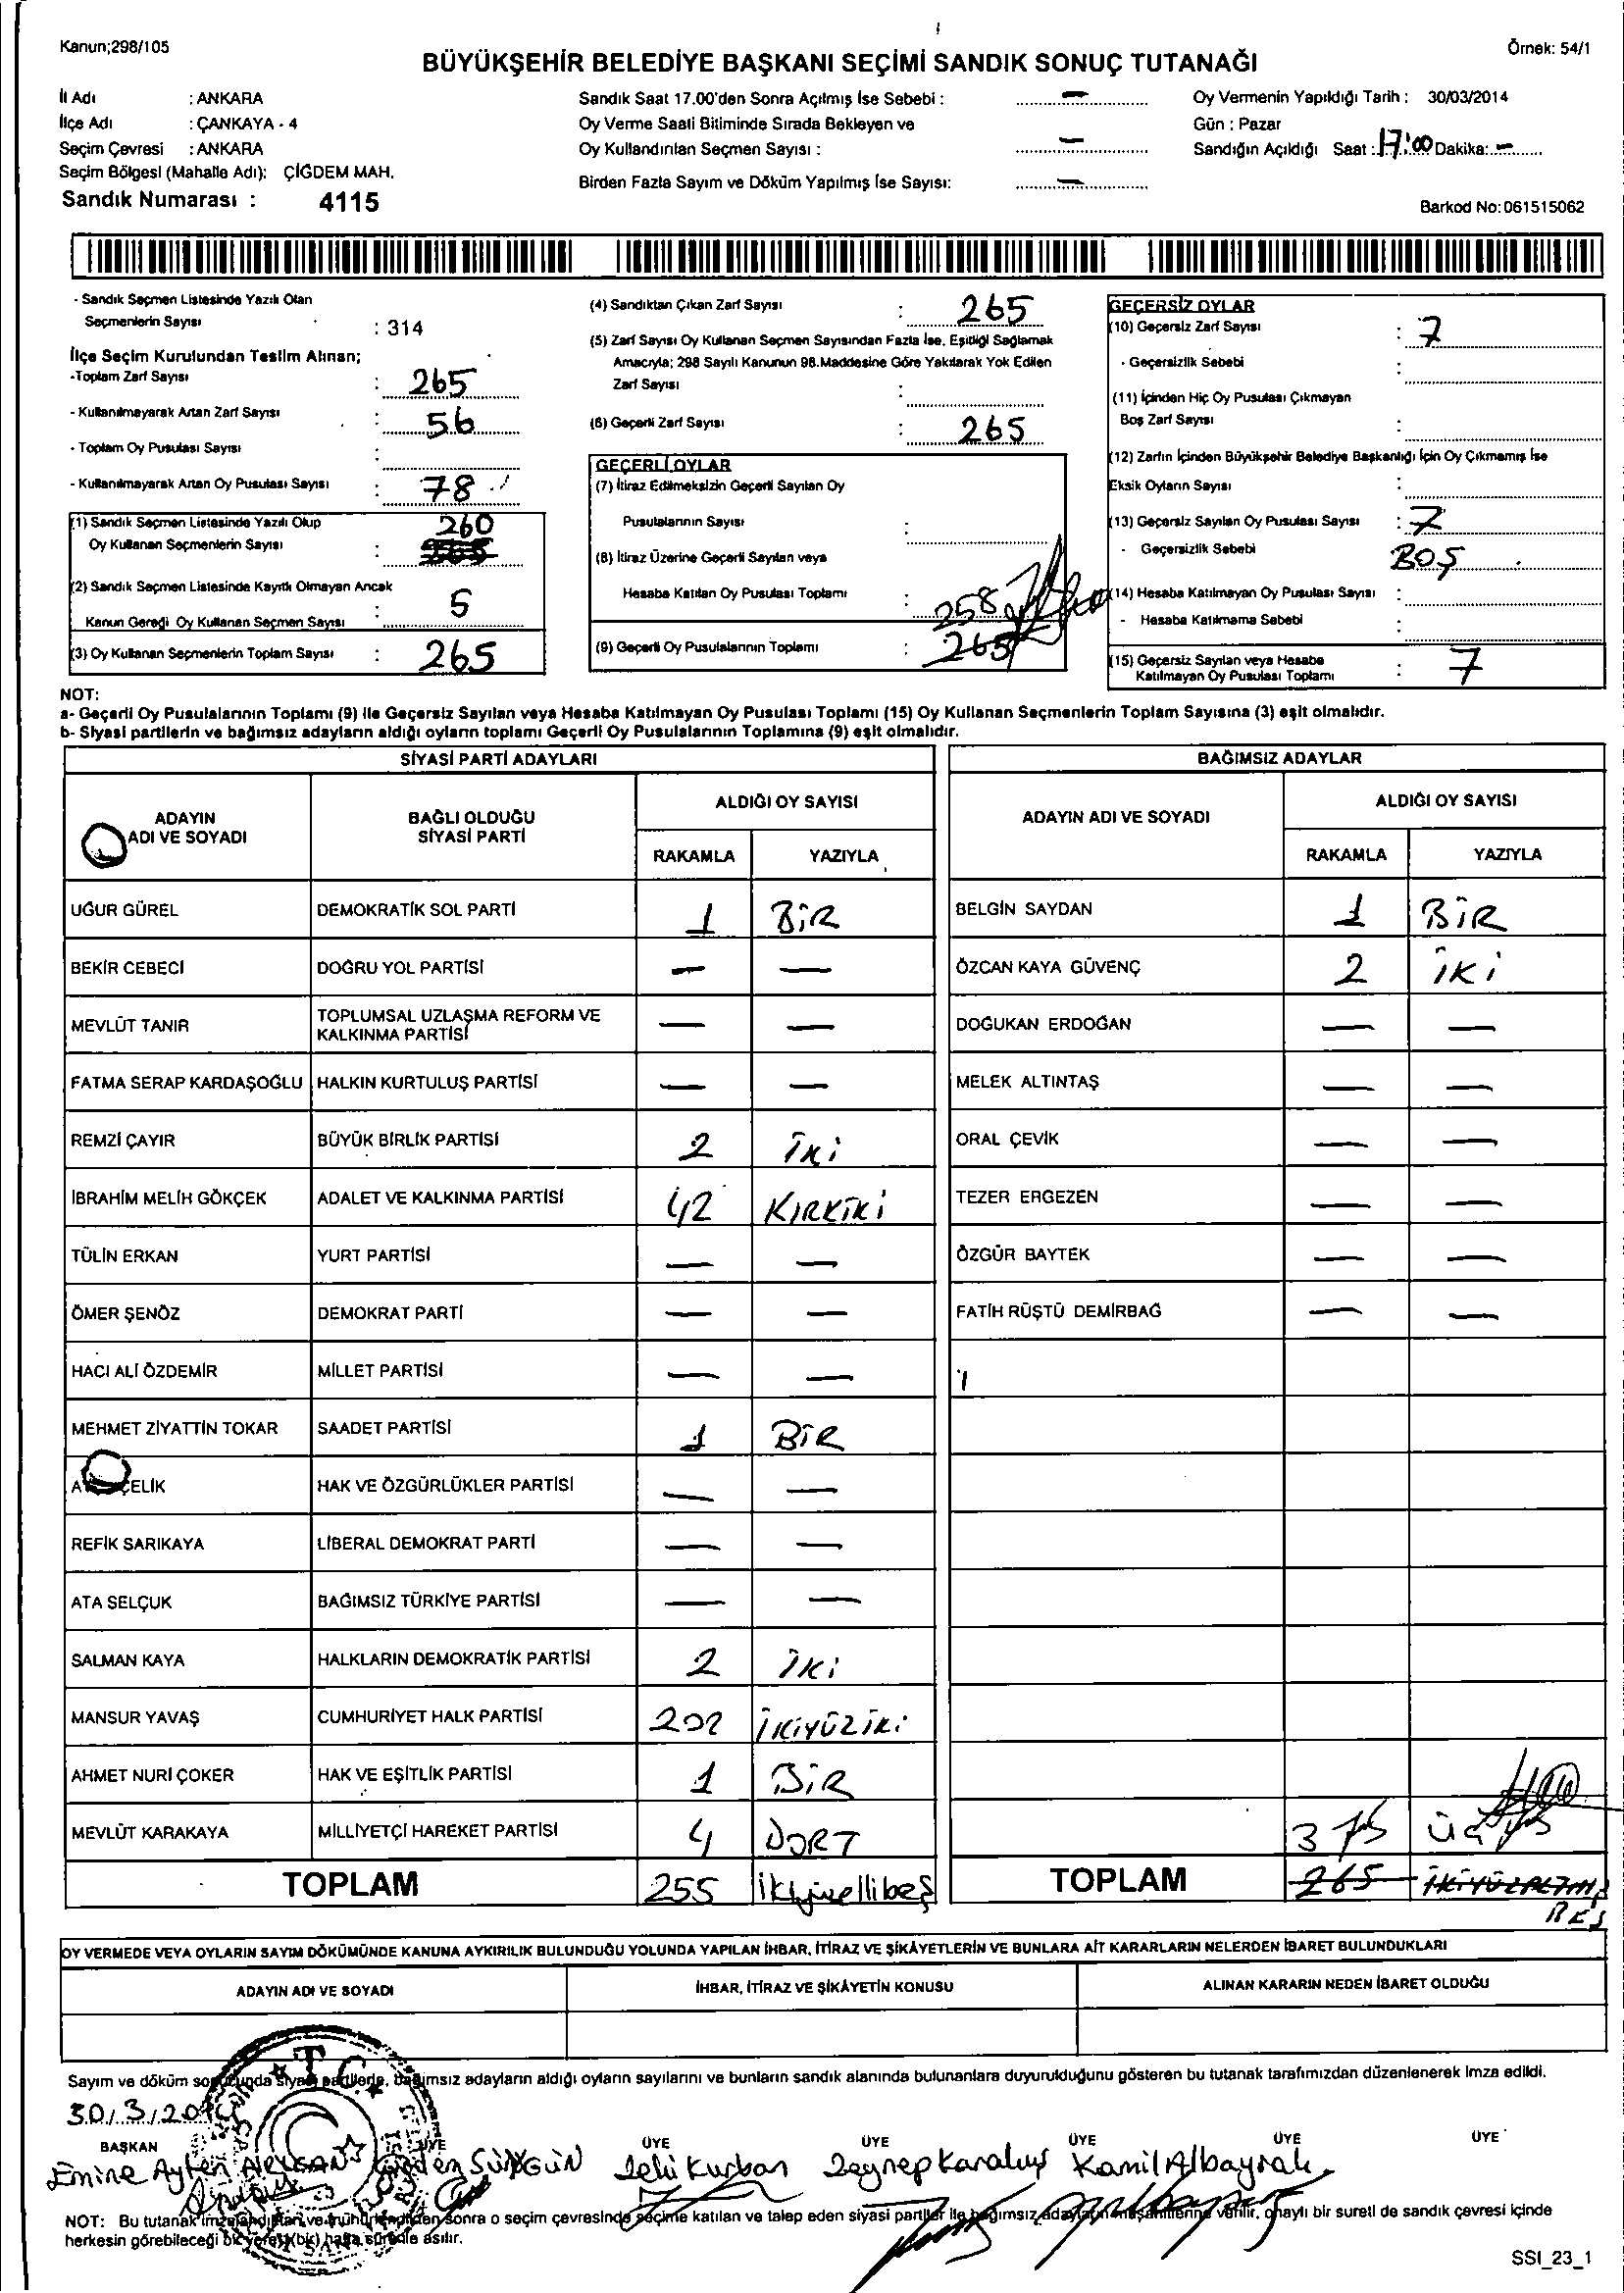 Kanun;298/105
Örnek: 54/1
BÜYÜKŞEHİR BELEDİYE BAŞKANI SEÇİMİ SANDIK SONUÇ TUTANAĞI
İl Adı : ANKARA
İlçe Adı : ÇANKAYA - 4
Seçim Çevresi : ANKARA
Seçim Bölgesi (Mahalle Adı): ÇİĞDEM MAH.
Sandık Numarası : 4115
Sandık Saat 17.00'den Sonra Açılmış İse Sebebi : —
Oy Verme Saati Bitiminde Sırada Bekleyen ve
Oy Kullandırılan Seçmen Sayısı : —
Birden Fazla Sayım ve Döküm Yapılmış İse Sayısı: —
Oy Vermenin Yapıldığı Tarih : 30/03/2014
Gün : Pazar
Sandığın Açıldığı Saat : 17:00 Dakika: —
Barkod No:061515062
- Sandık Seçmen Listesinde Yazılı Olan
Seçmenlerin Sayısı : 314
İlçe Seçim Kurulundan Teslim Alınan;
-Toplam Zarf Sayısı : 265
- Kullanılmayarak Artan Zarf Sayısı : 56
- Toplam Oy Pusulası Sayısı :
- Kullanılmayarak Artan Oy Pusulası Sayısı : 78
(1) Sandık Seçmen Listesinde Yazılı Olup 260
Oy Kullanan Seçmenlerin Sayısı :
(2) Sandık Seçmen Listesinde Kayıtlı Olmayan Ancak
Kanun Gereği Oy Kullanan Seçmen Sayısı : 5
(3) Oy Kullanan Seçmenlerin Toplam Sayısı : 265
(4) Sandıktan Çıkan Zarf Sayısı : 265
(5) Zarf Sayısı Oy Kullanan Seçmen Sayısından Fazla İse, Eşitliği Sağlamak
Amacıyla; 298 Sayılı Kanunun 98.Maddesine Göre Yakılarak Yok Edilen
Zarf Sayısı :
(6) Geçerli Zarf Sayısı : 265
GEÇERLİ OYLAR
(7) İtiraz Edilmeksizin Geçerli Sayılan Oy
Pusulalarının Sayısı :
(8) İtiraz Üzerine Geçerli Sayılan veya
Hesaba Katılan Oy Pusulası Toplamı : 258
(9) Geçerli Oy Pusulalarının Toplamı : 265
GEÇERSİZ OYLAR
(10) Geçersiz Zarf Sayısı : 7
- Geçersizlik Sebebi :
(11) İçinden Hiç Oy Pusulası Çıkmayan
Boş Zarf Sayısı :
(12) Zarfın İçinden Büyükşehir Belediye Başkanlığı İçin Oy Çıkmamış İse
Eksik Oyların Sayısı :
(13) Geçersiz Sayılan Oy Pusulası Sayısı : 7
- Geçersizlik Sebebi BOŞ
(14) Hesaba Katılmayan Oy Pusulası Sayısı :
- Hesaba Katılmama Sebebi :
(15) Geçersiz Sayılan veya Hesaba
Katılmayan Oy Pusulası Toplamı : 7
NOT:
a- Geçerli Oy Pusulalarının Toplamı (9) ile Geçersiz Sayılan veya Hesaba Katılmayan Oy Pusulası Toplamı (15) Oy Kullanan Seçmenlerin Toplam Sayısına (3) eşit olmalıdır.
b- Siyasi partilerin ve bağımsız adayların aldığı oyların toplamı Geçerli Oy Pusulalarının Toplamına (9) eşit olmalıdır.
SİYASİ PARTİ ADAYLARI
ADAYIN ADI VE SOYADI
BAĞLI OLDUĞU SİYASİ PARTİ
ALDIĞI OY SAYISI
RAKAMLA YAZIYLA
UĞUR GÜREL DEMOKRATİK SOL PARTİ 1 BİR
BEKİR CEBECİ DOĞRU YOL PARTİSİ — —
MEVLÜT TANIR TOPLUMSAL UZLAŞMA REFORM VE KALKINMA PARTİSİ — —
FATMA SERAP KARDAŞOĞLU HALKIN KURTULUŞ PARTİSİ — —
REMZİ ÇAYIR BÜYÜK BİRLİK PARTİSİ 2 İKİ
İBRAHİM MELİH GÖKÇEK ADALET VE KALKINMA PARTİSİ 42 KIRKİKİ
TÜLİN ERKAN YURT PARTİSİ — —
ÖMER ŞENÖZ DEMOKRAT PARTİ — —
HACI ALİ ÖZDEMİR MİLLET PARTİSİ — —
MEHMET ZİYATTİN TOKAR SAADET PARTİSİ 1 BİR
ÇELİK HAK VE ÖZGÜRLÜKLER PARTİSİ — —
REFİK SARIKAYA LİBERAL DEMOKRAT PARTİ — —
ATA SELÇUK BAĞIMSIZ TÜRKİYE PARTİSİ — —
SALMAN KAYA HALKLARIN DEMOKRATİK PARTİSİ 2 İKİ
MANSUR YAVAŞ CUMHURİYET HALK PARTİSİ 202 İKİYÜZİKİ
AHMET NURİ ÇOKER HAK VE EŞİTLİK PARTİSİ 1 BİR
MEVLÜT KARAKAYA MİLLİYETÇİ HAREKET PARTİSİ 4 DÖRT
TOPLAM 255 ikiyüzellibeş
BAĞIMSIZ ADAYLAR
ADAYIN ADI VE SOYADI
ALDIĞI OY SAYISI
RAKAMLA YAZIYLA
BELGİN SAYDAN 1 BİR
ÖZCAN KAYA GÜVENÇ 2 İKİ
DOĞUKAN ERDOĞAN — —
MELEK ALTINTAŞ — —
ORAL ÇEVİK — —
TEZER ERGEZEN — —
ÖZGÜR BAYTEK — —
FATİH RÜŞTÜ DEMİRBAĞ — —
3 ÜÇ
TOPLAM 265 İKİYÜZALTMIŞ
BEŞ
OY VERMEDE VEYA OYLARIN SAYIM DÖKÜMÜNDE KANUNA AYKIRILIK BULUNDUĞU YOLUNDA YAPILAN İHBAR, İTİRAZ VE ŞİKÂYETLERİN VE BUNLARA AİT KARARLARIN NELERDEN İBARET BULUNDUKLARI
ADAYIN ADI VE SOYADI İHBAR, İTİRAZ VE ŞİKÂYETİN KONUSU ALINAN KARARIN NEDEN İBARET OLDUĞU
Sayım ve döküm sonucunda siyasi partilerle, bağımsız adayların aldığı oyların sayılarını ve bunların sandık alanında bulunanlara duyurulduğunu gösteren bu tutanak tarafımızdan düzenlenerek imza edildi.
30/3/2014
T.C.
BAŞKAN ÜYE ÜYE ÜYE ÜYE ÜYE ÜYE
Emine Ayten SÜNGÜN Zeki Kurban Zeynep Karakuş Kamil Albayrak
NOT: Bu tutanak imzalandıktan ve mühürlendikten sonra o seçim çevresinde seçime katılan ve talep eden siyasi partiler ile bağımsız adayların müşahitlerine verilir, onaylı bir sureti de sandık çevresi içinde
herkesin görebileceği bir yere (bir) hafta süreyle asılır.
SSI_23_1